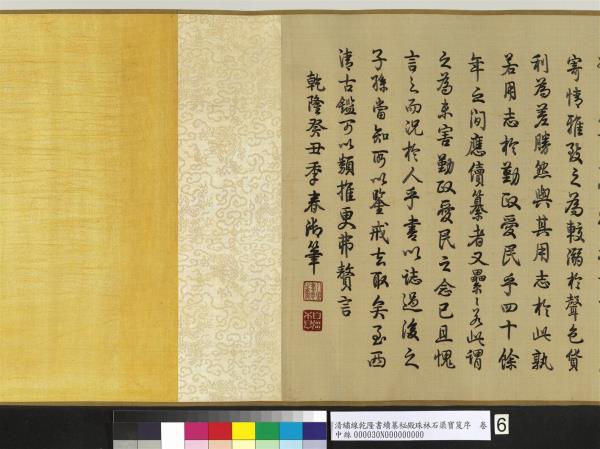 寄情雅致之為較溺於聲色貨
利為差勝然與其用志於此孰
若用志於勤政愛民乎四十餘
年之間應續纂者又累〻若此謂
之為未害勤政愛民之念已且愧
言之而況於人乎書以誌過後之
子孫當知所以鑒戒去取矣至西
清古鑑可以類推更弗贅言
乾隆癸丑季春御筆
清繡線乾隆書續纂秘殿珠林石渠寶笈序 卷
中絲 000030N000000000
6